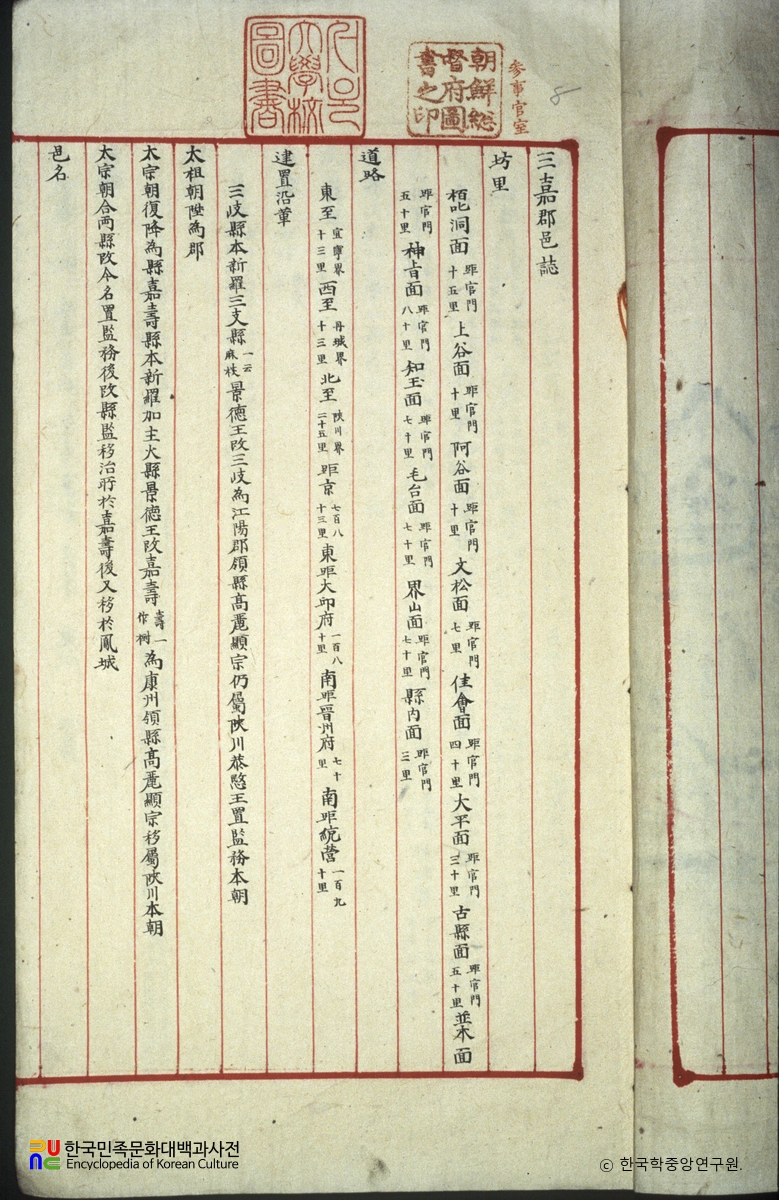 三嘉郡邑誌
坊里
栢㐎洞面 距官門十五里 上谷面 距官門十里 阿谷面 距官門十里 文松面 距官門七里 佳會面 距官門四十里 大平面 距官門三十里 古縣面 距官門五十里 並木面
距官門五十里 神旨面 距官門八十里 知玉面 距官門七十里 毛台面 距官門七十里 界山面 距官門七十里 縣內面 距官門三里
道路
東至 宜寧界十三里 西至 丹城界十三里 北至 陜川界二十五里 距京 七百八十三里 東距大邱府 一百八十里 南距晉州府 七十里 南距統營 一百九十里
建置沿革
三岐縣本新羅三支縣 一云麻杖 景德王改三岐為江陽郡領縣高麗顯宗仍屬陜川恭愍王置監務本朝
太祖朝陞為郡
太宗朝復降為縣嘉壽縣本新羅加主火縣景德王改嘉壽 壽一作樹 為康州領縣高麗顯宗移屬陜川本朝
太宗朝合兩縣改今名置監務後改縣監移治所於嘉壽後又移於鳳城
邑名
參事官室
朝鮮総督府圖書之印
大學校圖書
8
한국민족문화대백과사전
Encyclopedia of Korean Culture
© 한국학중앙연구원.